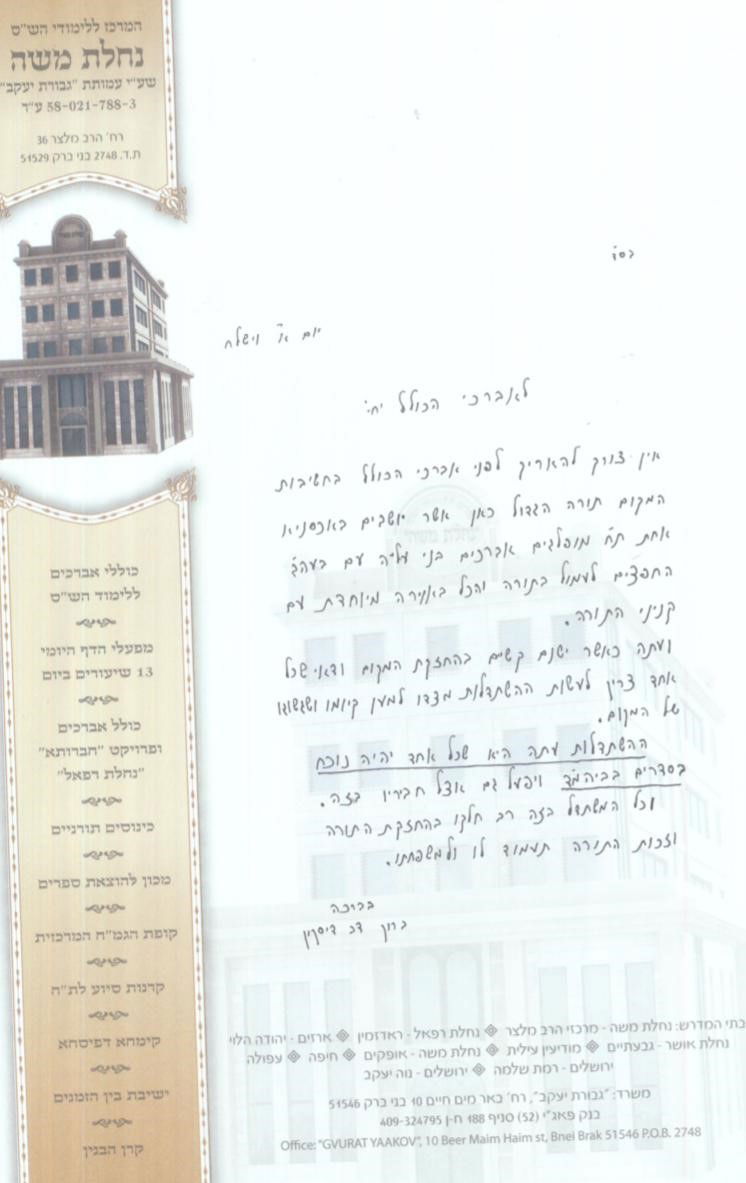 המרכז ללימודי הש"ס
נחלת משה
שע"י עמותת "גבורת יעקב"
58-021-788-3 ע"ר
רח' הרב מלצר 36
ת.ד. 2748 בני ברק 51529
בס"ד
יום א' וישלח
לאברכי הכולל יחי'
אין צורך להאריך לפני אברכי הכולל בחשיבות
המקום תורה הגדול כאן אשר יושבים באכסניא
אחת ת"ח מופלגים אברכים בני עליה עם בעה"ב
החפצים לעמול בתורה והכל באוירה מיוחדת עם
קניני התורה.
ועתה כאשר ישנם קשיים בהחזקת המקום ודאי שכל
אחד צריך לעשות השתדלות מצדו למען קיומו ושגשוגו
של המקום.
ההשתדלות עתה היא שכל אחד יהיה נוכח
בסדרים בביהמ"ד ויפעל גם אצל חבריו בזה.
וכל המשתדל בזה רב חלקו בהחזקת התורה
וזכות התורה תעמוד לו ולמשפחתו.
בברכה
ברוך דיסקין
נחלת משה
כוללי אברכים
ללימוד הש"ס
מפעלי הדף היומי
13 שיעורים ביום
כולל אברכים
ופרויקט "חברותא"
"נחלת רפאל"
כינוסים תורניים
מכון להוצאת ספרים
קופת הגמ"ח המרכזית
קרנות סיוע לת"ח
קימחא דפיסחא
ישיבת בין הזמנים
קרן הבנין
בתי המדרש: נחלת משה - מרכזי הרב מלצר ◈ נחלת רפאל - ראדזמין ◈ ארזים - יהודה הלוי
נחלת אושר - גבעתיים ◈ מודיעין עילית ◈ נחלת משה - אופקים ◈ חיפה ◈ עפולה
ירושלים - רמת שלמה ◈ ירושלים - נוה יעקב
משרד: "גבורת יעקב", רח' באר מים חיים 10 בני ברק 51546
בנק פאג"י (52) סניף 188 ח-ן 409-324795
Office: "GVURAT YAAKOV", 10 Beer Maim Haim st, Bnei Brak 51546 P.O.B. 2748